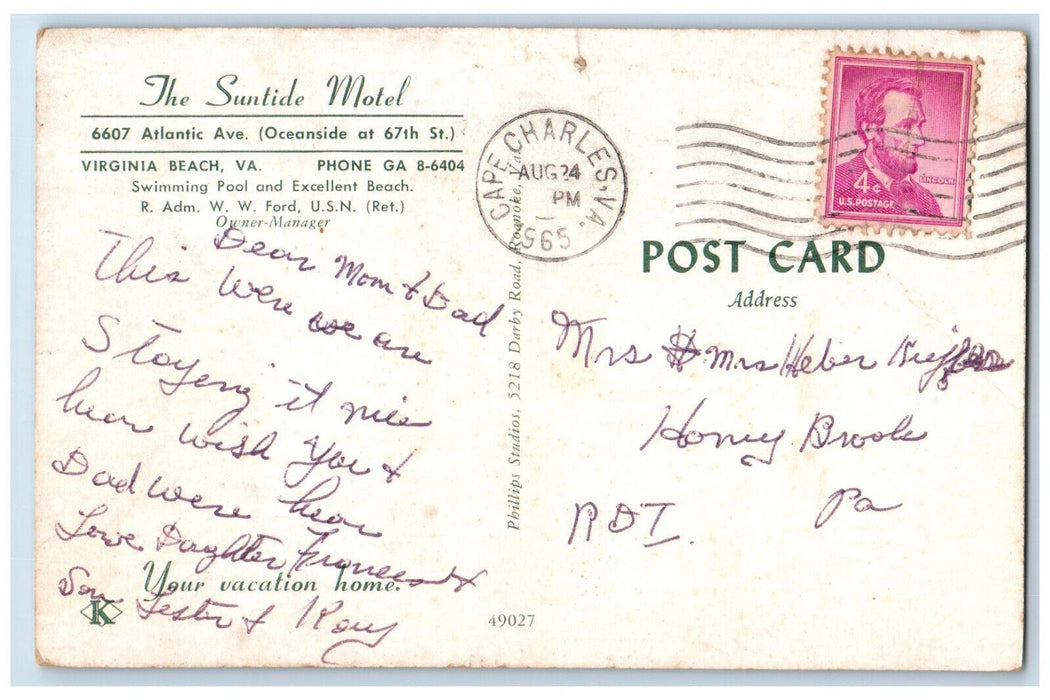 The Suntide Motel
6607 Atlantic Ave. (Oceanside at 67th St.)
VIRGINIA BEACH, VA. PHONE GA 8-6404
Swimming Pool and Excellent Beach.
R. Adm. W. W. Ford, U.S.N. (Ret.)
Owner-Manager
Dear Mom & Dad
This were we are
Stayeng it nice
hear wish you &
Dad were hear
Love Daughter Frances &
Son Lester & Kay
Your vacation home.
K
Phillips Studios, 5218 Darby Road, Roanoke, Va.
49027
CAPE CHARLES, VA.
AUG 24
PM
1965
4¢
LINCOLN
U.S. POSTAGE
POST CARD
Address
Mrs & Mrs Heber
Honey Brook
RD I. Pa